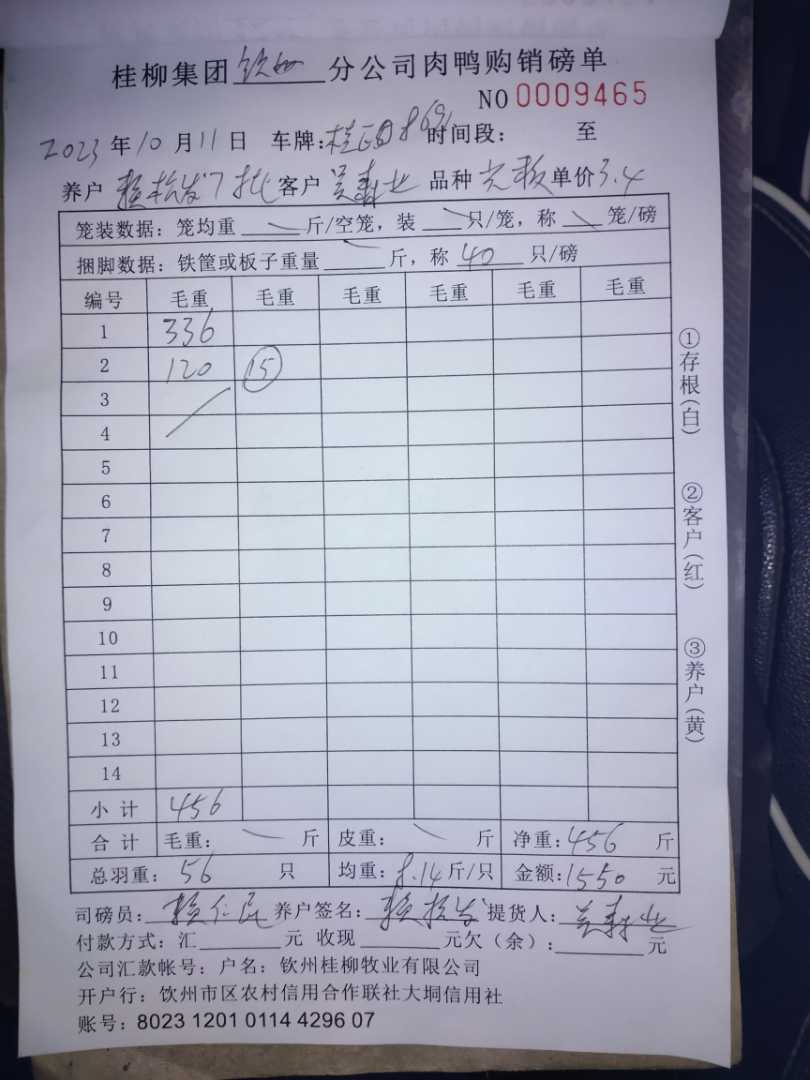 桂柳集团钦州分公司肉鸭购销磅单
NO 0009465
2023年10月11日 车牌: 时间段: 至
养户 赖 发7批 客户 吴寿业 品种 单价3.4
笼装数据: 笼均重 斤/空笼, 装 只/笼, 称 笼/磅
捆脚数据: 铁筐或板子重量 斤, 称 40 只/磅
编号 毛重 毛重 毛重 毛重 毛重 毛重
1 336
2 120 15
3
4
5
6
7
8
9
10
11
12
13
14
小计 456
合计 毛重: 斤 皮重: 斤 净重:456 斤
总羽重: 56 只 均重:8.14斤/只 金额:1550元
司磅员: 赖仁 养户签名: 赖 发 提货人: 吴寿业
付款方式: 汇 元 收现 元欠(余): 元
公司汇款帐号: 户名: 钦州桂柳牧业有限公司
开户行: 饮州市区农村信用合作联社大垌信用社
账号: 8023 1201 0114 4296 07
①存根(白)
②客户(红)
③养户(黄)